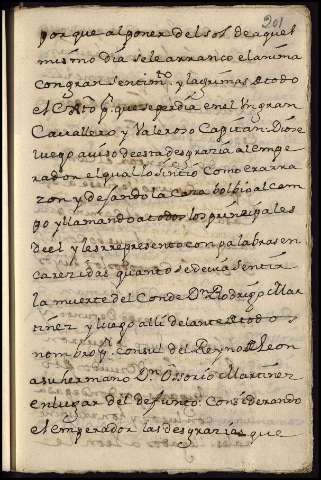 201
por que al poner del sol de aquel
mismo dia sele arranco el anima
con gran sentimto. y lagrimas de todo
el Exto. q. que se perdia en el Un gran
Cavallero y Valeroso Capitan. Diose
luego aviso de esta desgrazia al empe
rador el qual lo sintio como era ra
zon y dejando la caza bolbio al cam
po y llamando a todos los principales
de el y les rrepresento con palabras en
carezidas quanto se devia sentir
la muerte del Conde Dn. Rodrigo Mar
tinez y luego alli delante de todos
nombro p. Consul del Reyno de Leon
a su hermano Dn. Ossorio Martinez
en lugar del defunto. Considerando
el emperador las desgrazias que